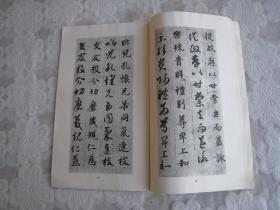 從政存以甘棠去而益詠
從政存以甘棠去而益詠
樂殊貴賤禮別尊卑上和
樂殊貴賤禮別尊卑上和
比兒孔懷兄弟同氣連枝
比兒孔懷兄弟同氣連枝
交友投分切磨箴規仁慈
交友投分切磨箴規仁慈